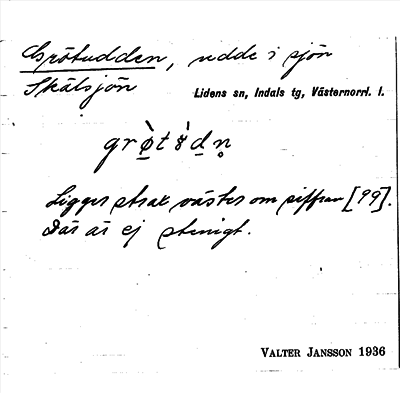 Grötudden, udde i sjön
Skälsjön
Lidens sn, Indals tg, Västernorrl. l.
grø̀tɤ̀dn̥
Ligger strax väster om siffran [99].
Där är ej stenigt.
VALTER JANSSON 1936